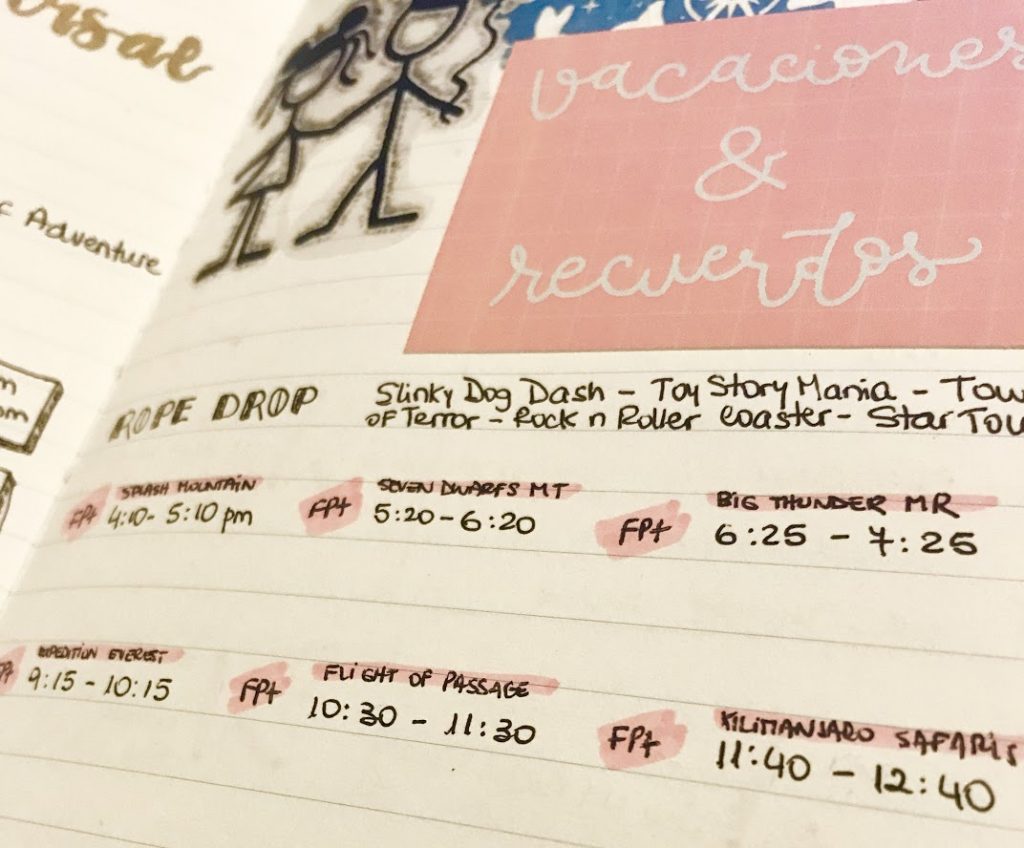 ersal
c Adventure
m
om
vacaciones
&
recuerdos
ROPE DROP
Slinky Dog Dash - Toy Story Mania - Tow
of Terror - Rock n Roller Coaster - Star Tou
FP+ SPLASH MOUNTAIN
4:10 - 5:10 pm
FP+ SEVEN DWARFS MT
5:20 - 6:20
FP+ BIG THUNDER MR
6:25 - 7:25
FP+ EXPEDITION EVEREST
9:15 - 10:15
FP+ FLIGHT OF PASSAGE
10:30 - 11:30
FP+ KILIMANJARO SAFARIS
11:40 - 12:40